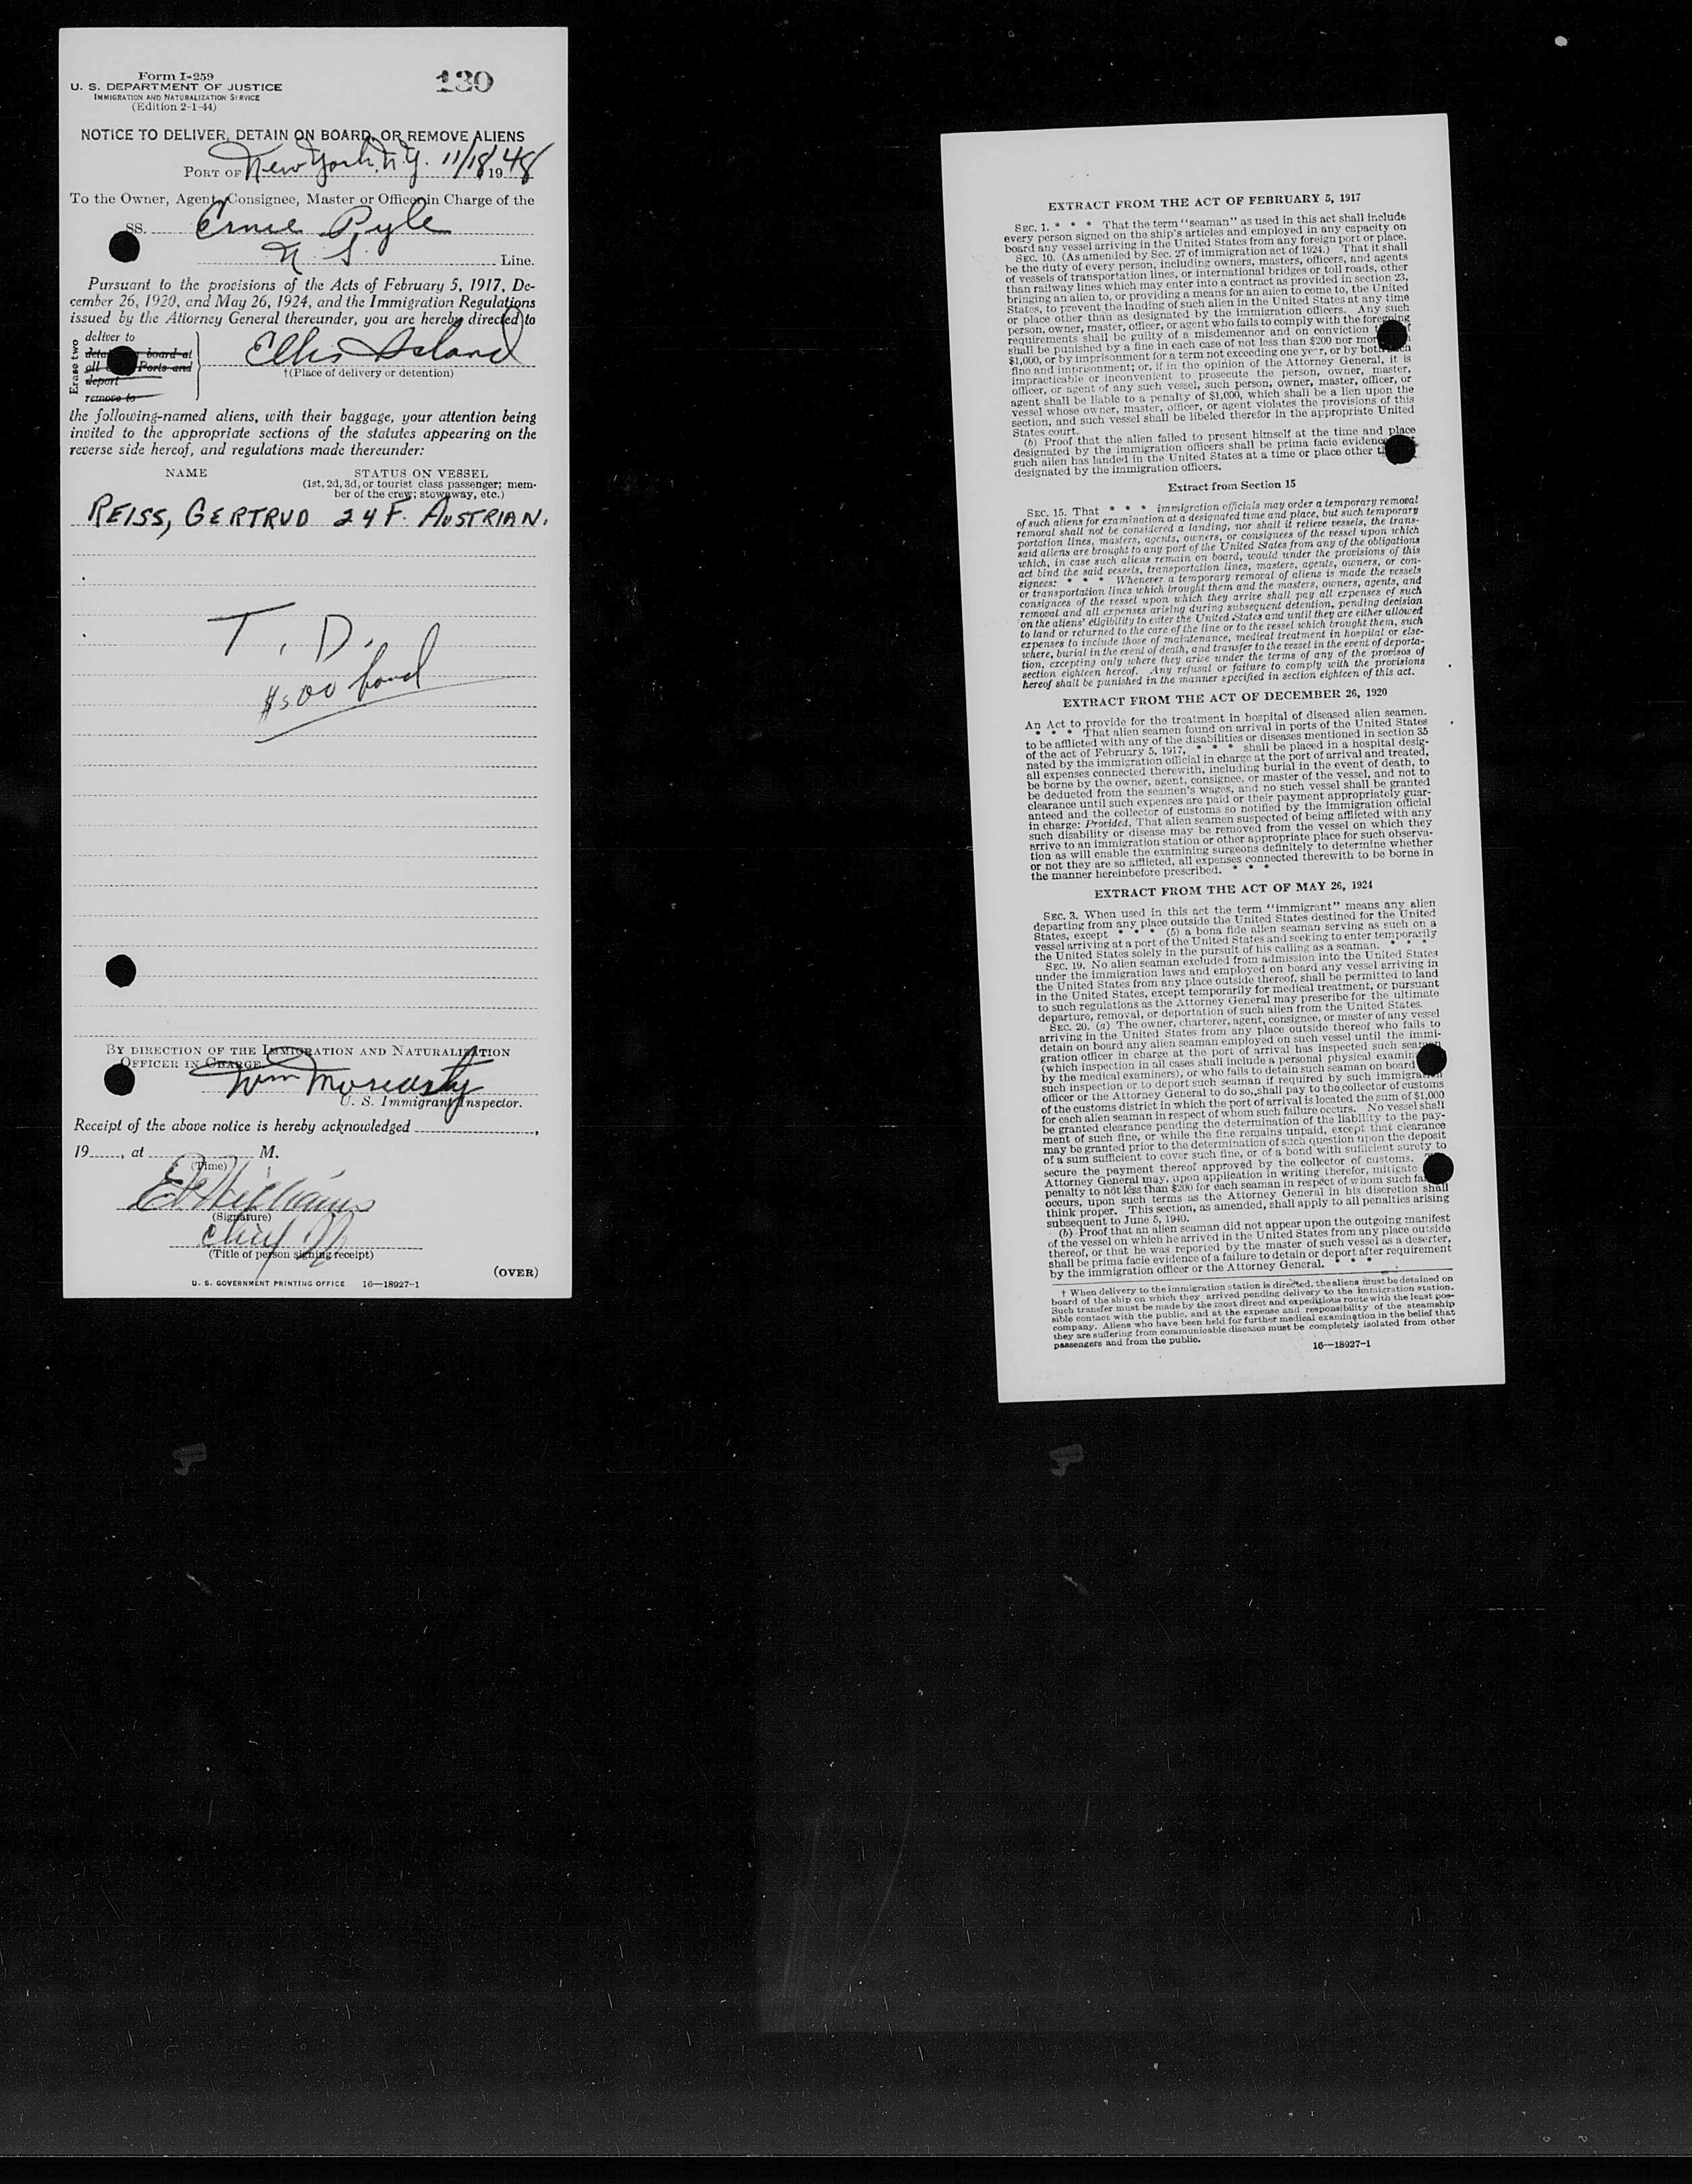 Form I-259
U. S. DEPARTMENT OF JUSTICE
IMMIGRATION AND NATURALIZATION SERVICE
(Edition 2-1-44)
130
NOTICE TO DELIVER, DETAIN ON BOARD, OR REMOVE ALIENS
PORT OF New York, N.Y. 11/18 1948
To the Owner, Agent, Consignee, Master or Officer in Charge of the
SS. Ernie Pyle
Line.
Pursuant to the provisions of the Acts of February 5, 1917, De-
cember 26, 1920, and May 26, 1924, and the Immigration Regulations
issued by the Attorney General thereunder, you are hereby directed to
Erase two
deliver to
board at
all Ports and
deport
remove to
Ellis Island
†(Place of delivery or detention)
the following-named aliens, with their baggage, your attention being
invited to the appropriate sections of the statutes appearing on the
reverse side hereof, and regulations made thereunder:
NAME STATUS ON VESSEL
(1st, 2d, 3d, or tourist class passenger; mem-
ber of the crew; stowaway, etc.)
REISS, GERTRUD 24 F. AUSTRIAN.
T. D.
$500 bond
BY DIRECTION OF THE IMMIGRATION AND NATURALIZATION
OFFICER IN CHARGE
U. S. Immigrant Inspector.
Receipt of the above notice is hereby acknowledged
19 , at M.
(Time)
Williams
(Signature)
Chief
(Title of person signing receipt)
(OVER)
U. S. GOVERNMENT PRINTING OFFICE 16—18927-1
EXTRACT FROM THE ACT OF FEBRUARY 5, 1917
SEC. 1. * * * That the term "seaman" as used in this act shall include
every person signed on the ship's articles and employed in any capacity on
board any vessel arriving in the United States from any foreign port or place.
SEC. 10. (As amended by Sec. 27 of immigration act of 1924.) That it shall
be the duty of every person, including owners, masters, officers, and agents
of vessels of transportation lines, or international bridges or toll roads, other
than railway lines which may enter into a contract as provided in section 23,
bringing an alien to, or providing a means for an alien to come to, the United
States, to prevent the landing of such alien in the United States at any time
or place other than as designated by the immigration officers. Any such
person, owner, master, officer, or agent who fails to comply with the foregoing
requirements shall be guilty of a misdemeanor and on conviction
shall be punished by a fine in each case of not less than $200 nor mor
$1,000, or by imprisonment for a term not exceeding one year, or by both such
fine and imprisonment; or, if in the opinion of the Attorney General, it is
impracticable or inconvenient to prosecute the person, owner, master,
officer, or agent of any such vessel, such person, owner, master, officer, or
agent shall be liable to a penalty of $1,000, which shall be a lien upon the
vessel whose owner, master, officer, or agent violates the provisions of this
section, and such vessel shall be libeled therefor in the appropriate United
States court.
(b) Proof that the alien failed to present himself at the time and place
designated by the immigration officers shall be prima facie evidence
such alien has landed in the United States at a time or place other
designated by the immigration officers.
Extract from Section 15
SEC. 15. That * * * immigration officials may order a temporary removal
of such aliens for examination at a designated time and place, but such temporary
removal shall not be considered a landing, nor shall it relieve vessels, the trans-
portation lines, masters, agents, owners, or consignees of the vessel upon which
said aliens are brought to any port of the United States from any of the obligations
which, in case such aliens remain on board, would under the provisions of this
act bind the said vessels, transportation lines, masters, agents, owners, or con-
signees: * * * Whenever a temporary removal of aliens is made the vessels
or transportation lines which brought them and the masters, owners, agents, and
consignees of the vessel upon which they arrive shall pay all expenses of such
removal and all expenses arising during subsequent detention, pending decision
on the aliens' eligibility to enter the United States and until they are either allowed
to land or returned to the care of the line or to the vessel which brought them, such
expenses to include those of maintenance, medical treatment in hospital or else-
where, burial in the event of death, and transfer to the vessel in the event of deporta-
tion, excepting only where they arise under the terms of any of the provisos of
section eighteen hereof. Any refusal or failure to comply with the provisions
hereof shall be punished in the manner specified in section eighteen of this act.
EXTRACT FROM THE ACT OF DECEMBER 26, 1920
An Act to provide for the treatment in hospital of diseased alien seamen.
* * * That alien seamen found on arrival in ports of the United States
to be afflicted with any of the disabilities or diseases mentioned in section 35
of the act of February 5, 1917, * * * shall be placed in a hospital desig-
nated by the immigration official in charge at the port of arrival and treated,
all expenses connected therewith, including burial in the event of death, to
be borne by the owner, agent, consignee, or master of the vessel, and not to
be deducted from the seamen's wages, and no such vessel shall be granted
clearance until such expenses are paid or their payment appropriately guar-
anteed and the collector of customs so notified by the immigration official
in charge: Provided, That alien seamen suspected of being afflicted with any
such disability or disease may be removed from the vessel on which they
arrive to an immigration station or other appropriate place for such observa-
tion as will enable the examining surgeons definitely to determine whether
or not they are so afflicted, all expenses connected therewith to be borne in
the manner hereinbefore prescribed. * * *
EXTRACT FROM THE ACT OF MAY 26, 1924
SEC. 3. When used in this act the term "immigrant" means any alien
departing from any place outside the United States destined for the United
States, except * * * (5) a bona fide alien seaman serving as such on a
vessel arriving at a port of the United States and seeking to enter temporarily
the United States solely in the pursuit of his calling as a seaman. * * *
SEC. 19. No alien seaman excluded from admission into the United States
under the immigration laws and employed on board any vessel arriving in
the United States from any place outside thereof, shall be permitted to land
in the United States, except temporarily for medical treatment, or pursuant
to such regulations as the Attorney General may prescribe for the ultimate
departure, removal, or deportation of such alien from the United States.
SEC. 20. (a) The owner, charterer, agent, consignee, or master of any vessel
arriving in the United States from any place outside thereof who fails to
detain on board any alien seaman employed on such vessel until the immi-
gration officer in charge at the port of arrival has inspected such seaman
(which inspection in all cases shall include a personal physical examin
by the medical examiners), or who fails to detain such seaman on board
such inspection or to deport such seaman if required by such immigration
officer or the Attorney General to do so, shall pay to the collector of customs
of the customs district in which the port of arrival is located the sum of $1,000
for each alien seaman in respect of whom such failure occurs. No vessel shall
be granted clearance pending the determination of the liability to the pay-
ment of such fine, or while the fine remains unpaid, except that clearance
may be granted prior to the determination of such question upon the deposit
of a sum sufficient to cover such fine, or of a bond with sufficient surety to
secure the payment thereof approved by the collector of customs.
Attorney General may, upon application in writing therefor, mitigate
penalty to not less than $200 for each seaman in respect of whom such fa
occurs, upon such terms as the Attorney General in his discretion shall
think proper. This section, as amended, shall apply to all penalties arising
subsequent to June 5, 1940.
(b) Proof that an alien seaman did not appear upon the outgoing manifest
of the vessel on which he arrived in the United States from any place outside
thereof, or that he was reported by the master of such vessel as a deserter,
shall be prima facie evidence of a failure to detain or deport after requirement
by the immigration officer or the Attorney General. * * *
† When delivery to the immigration station is directed, the aliens must be detained on
board of the ship on which they arrived pending delivery to the immigration station.
Such transfer must be made by the most direct and expeditious route with the least pos-
sible contact with the public, and at the expense and responsibility of the steamship
company. Aliens who have been held for further medical examination in the belief that
they are suffering from communicable diseases must be completely isolated from other
passengers and from the public.
16—18927-1